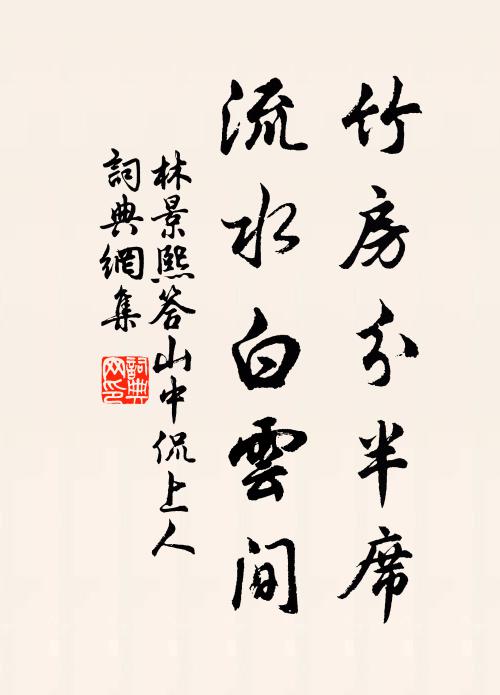 竹房分半席
流水白雲間
林景熙答山中侃上人
詞典網集
詞典網印